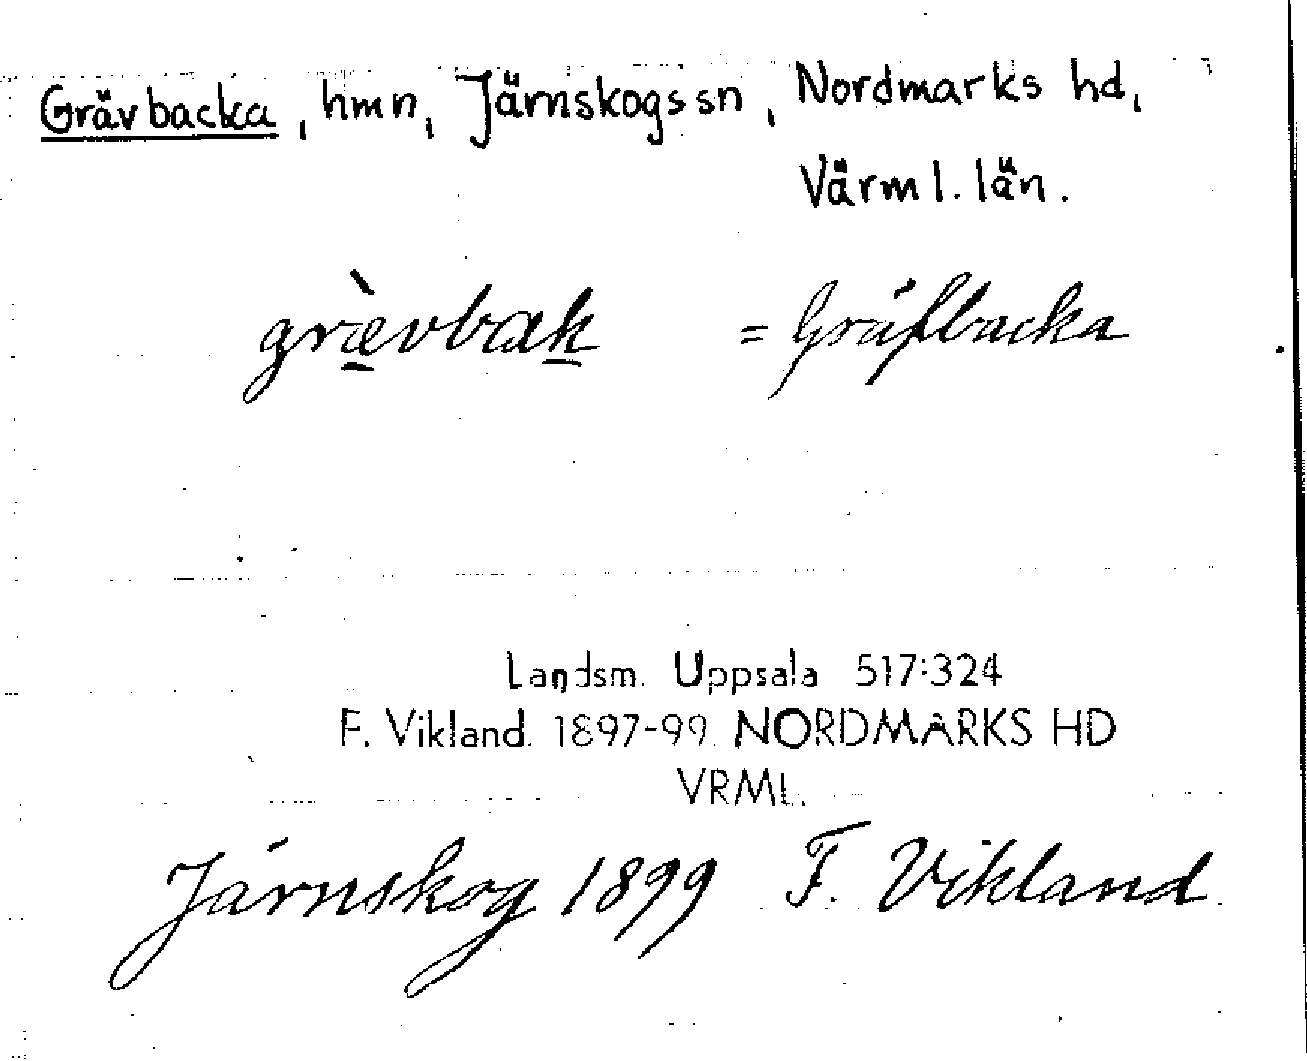 Grävbacka, hmn, Järnskogs sn, Nordmarks hd,
Värml. län.
grævbak = Gräfbacka
Landsm. Uppsala 517:324
F. Vikland. 1897-99. NORDMARKS HD
VRML.
Järnskog 1899 F. Vikland